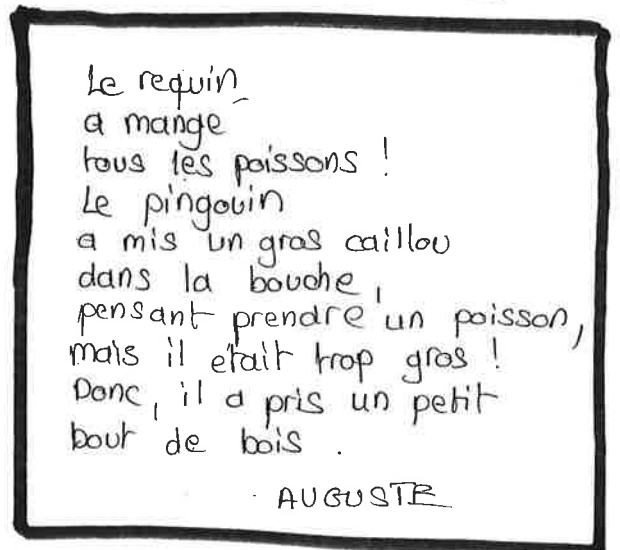 Le requin
a mangé
tous les poissons !
Le pingouin
a mis un gros caillou
dans la bouche,
pensant prendre un poisson,
mais il était trop gros !
Donc, il a pris un petit
bout de bois.
AUGUSTE